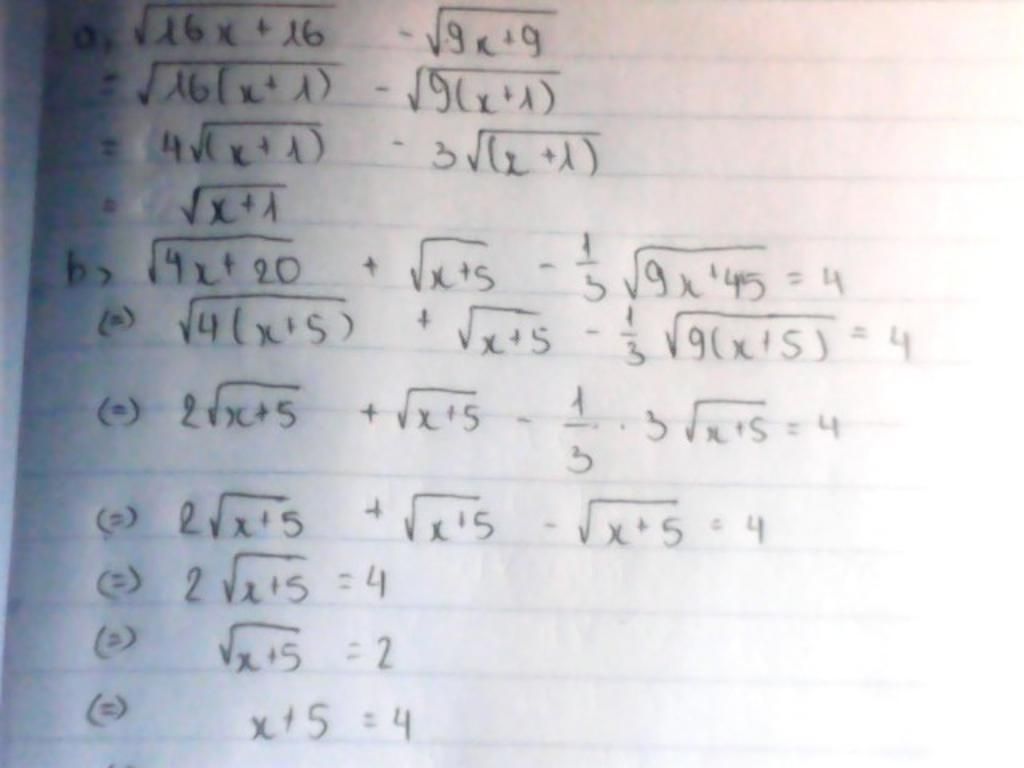 a, √(16x + 16) - √(9x + 9)
= √(16(x + 1)) - √(9(x + 1))
= 4√((x + 1)) - 3√((x + 1))
= √(x + 1)
b, √(4x + 20) + √(x + 5) - 1/3 √(9x + 45) = 4
(=) √(4(x + 5)) + √(x + 5) - 1/3 √(9(x + 5)) = 4
(=) 2√(x + 5) + √(x + 5) - 1/3 . 3√(x + 5) = 4
(=) 2√(x + 5) + √(x + 5) - √(x + 5) = 4
(=) 2√(x + 5) = 4
(=) √(x + 5) = 2
(=) x + 5 = 4